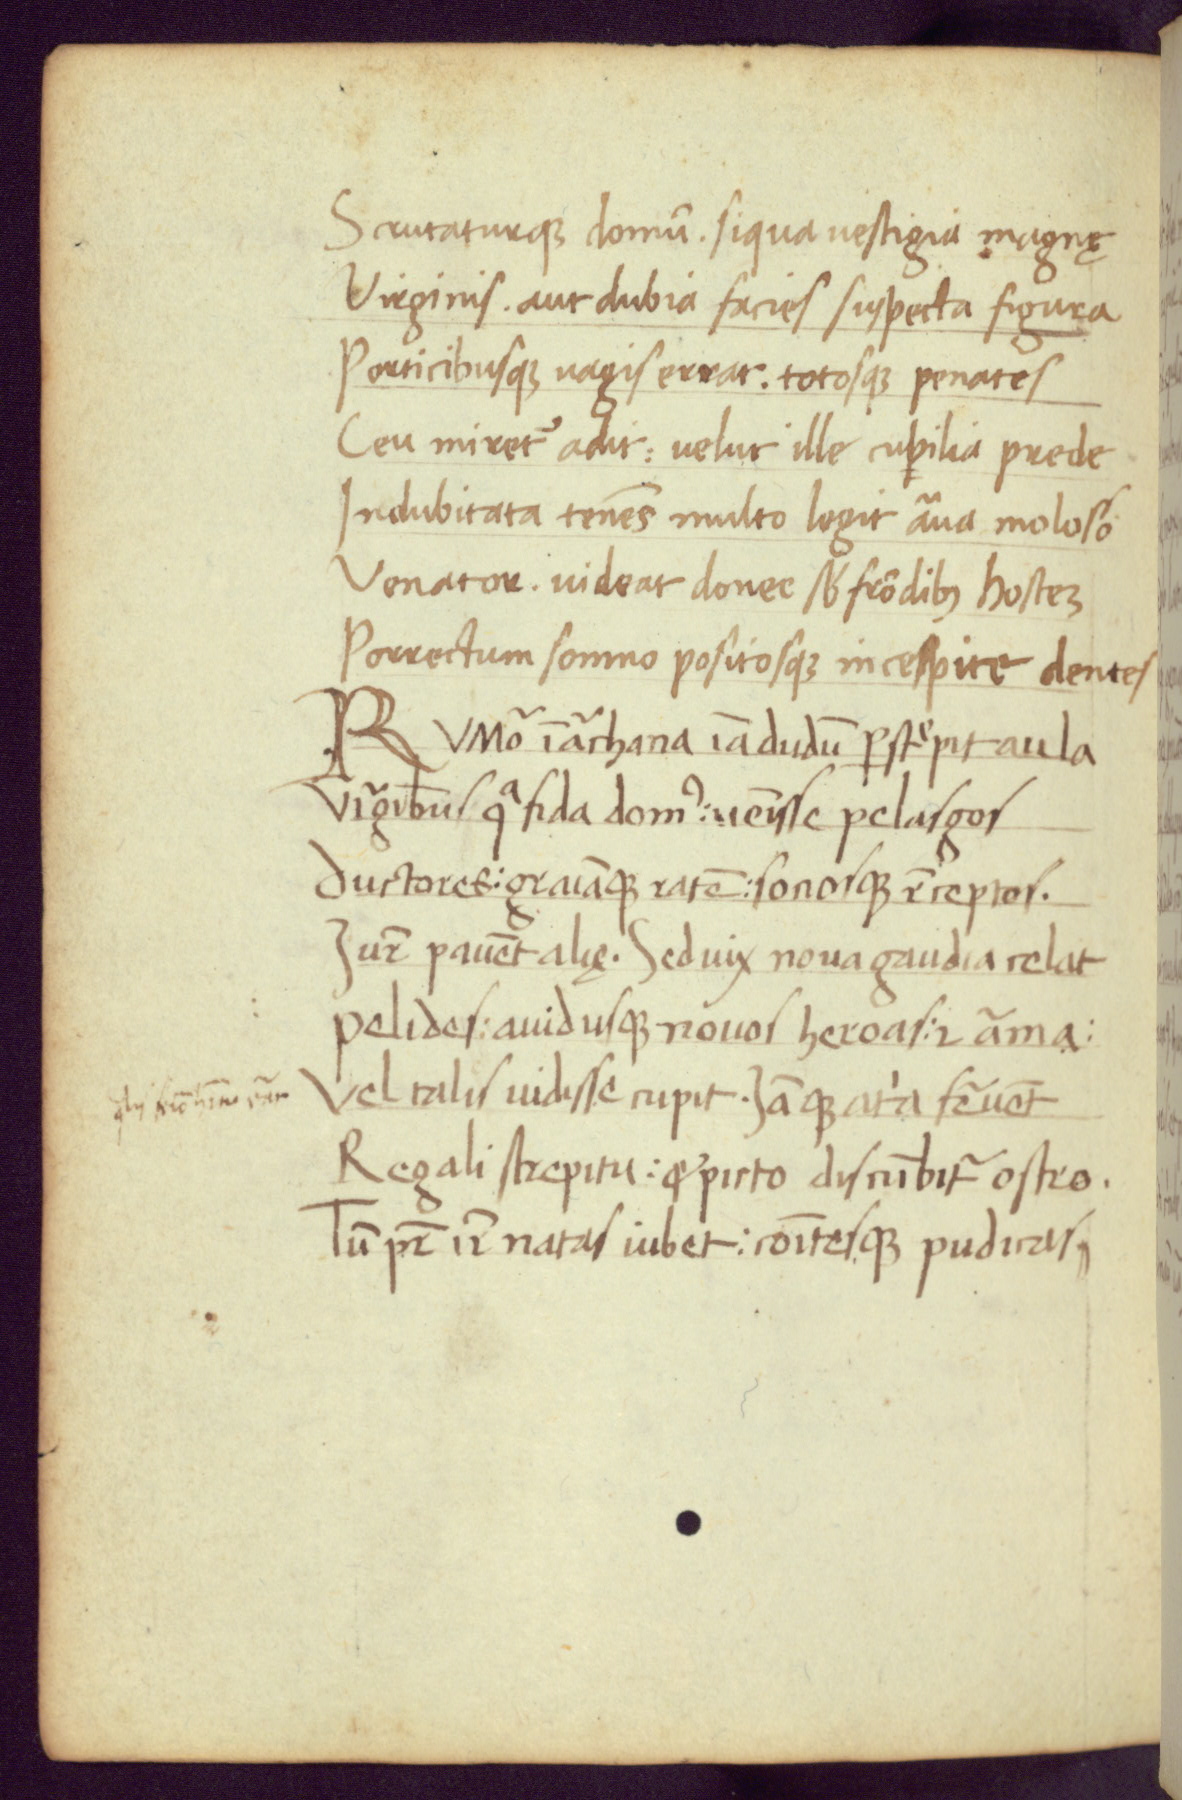 Scrutaturqꝫ domũ. siqua uestigia magnę
Virginis. aut dubia facies suspecta figura
Porticibusqꝫ uagis errat. totosqꝫ penates
Ceu miret᷑ adit: uelut ille cubilia prede
Indubitata tenẽs multo legit ãua moloso
Venator. uideat donec sƀ frõdibꝫ hosteꝫ
Porrectum somno positosqꝫ in cespite dentes
RVMõ ĩ ãrchana iã dudũ ꝑstrepit aula
Vĩgĩbus qᵃ fida domꝰ: uẽisse pelasgos
Ductores: graiãqꝫ ratẽ: sociosqꝫ r̃ceptos.
Jur̃ pauẽt alię. Sed uix noua gaudia celat
pelides: auidusqꝫ nouos heroas: ⁊ ãma:
Vel talis uidisse cupit. Jãqꝫ atria fẽuẽt
Regali strepitu: & picto discũbit᷑ ostro.
Tũ pr̃ ir̃ natas iubet: coĩtesqꝫ pudicas